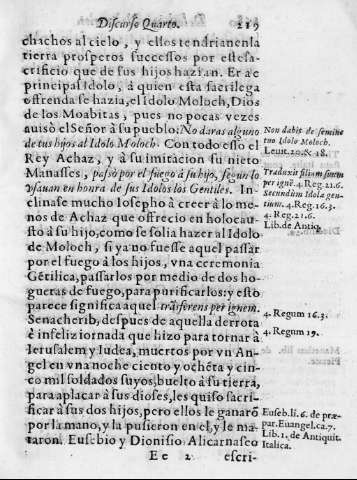 Discurso Quarto. 219
chachos al cielo, y ellos tendrian en la
tierra prosperos successos por este sa-
crificio que de sus hijos hazian. Era el
principal Idolo, à quien esta sacrilega
offrenda se hazia, el Idolo Moloch, Dios
de los Moabitas, pues no pocas vezes
auisò el Señor à su pueblo: No daras alguno
de tus hijos al Idolo Moloch. Con todo esso el
Rey Achaz, y à su imitacion su nieto
Manasses, passo por el fuego â su hijo, segun lo
vsauan en honra de sus Idolos los Gentiles. In-
clinase mucho Iosepho à creer à lo me-
nos de Achaz que offrecio en holocau-
sto à su hijo, como se solia hazer al Idolo
de Moloch, si ya no fuesse aquel passar
por el fuego à los hijos, vna ceremonia
Gẽtilica, passarlos por medio de dos ho-
gueras de fuego, para purificarlos: y esto
parece significa aquel trãsferens per ignem.
Senacherib, despues de aquella derrota
è infeliz jornada que hizo para tornar à
Ierusalem y Iudea, muertos por vn An-
gel en vna noche ciento y ochẽta y cin-
co mil soldados suyos, buelto à su tierra,
para aplacar à sus dioses, les quiso sacri-
ficar à sus dos hijos, pero ellos le ganarõ
por la mano, y la pusieron en el, y le ma-
taron. Eusebio y Dionisio Alicarnaseo
Ee 2 escri-
Non dabit de semine
tuo Idolo Moloch.
Leuit. 20. & 18.
Traduxit filium suum
per ignẽ. 4. Reg. 21.6.
Secundum Idola gen-
tium. 4. Reg. 16.3.
4. Reg. 21.6.
Lib. de Antiq.
4. Regum 16.3.
4. Regum 19.
Euseb. li. 6. de præp-
par. Euangel. ca. 7.
Lib. 1. de Antiquit.
Italica.